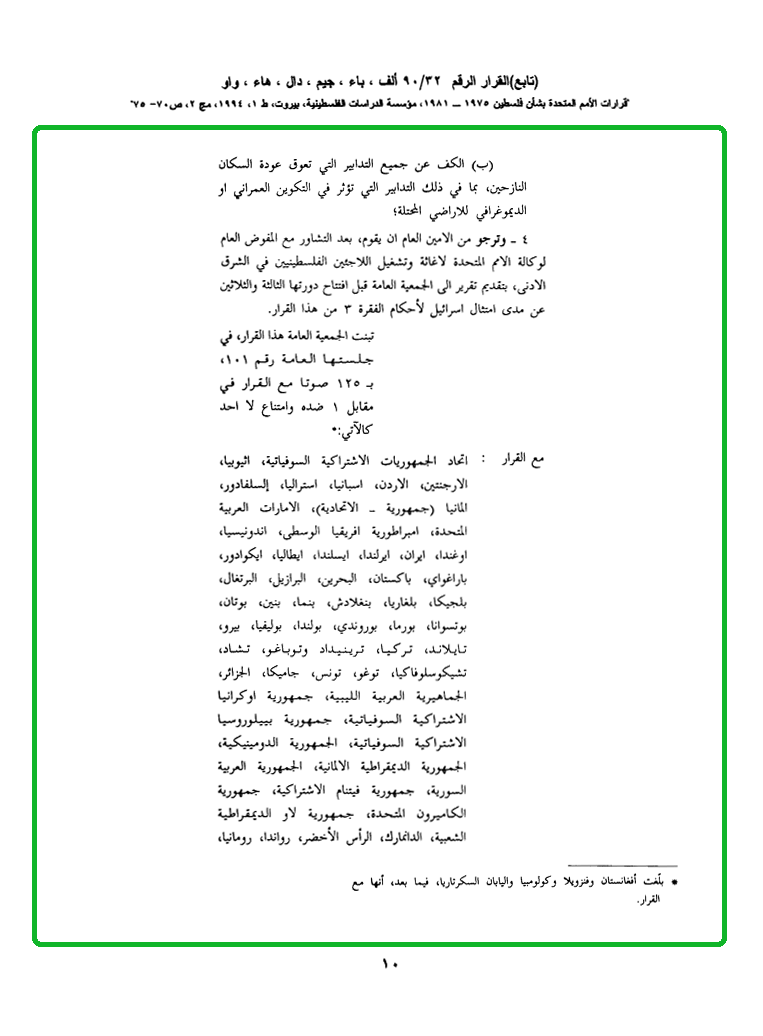 (تابع)القرار الرقم ٩٠/٣٢ ألف ، باء ، جيم ، دال ، هاء ، واو
"قرارات الأمم المتحدة بشأن فلسطين ١٩٧٥ — ١٩٨١، مؤسسة الدراسات الفلسطينية، بيروت، ط ١، ١٩٩٤، مج ٢، ص٧٠- ٧٥"
(ب) الكف عن جميع التدابير التي تعوق عودة السكان
النازحين، بما في ذلك التدابير التي تؤثر في التكوين العمراني او
الديموغرافي للاراضي المحتلة؛
٤ ـ وترجو من الامين العام ان يقوم، بعد التشاور مع المفوض العام
لوكالة الامم المتحدة لاغاثة وتشغيل اللاجئين الفلسطينيين في الشرق
الادنى، بتقديم تقرير الى الجمعية العامة قبل افتتاح دورتها الثالثة والثلاثين
عن مدى امتثال اسرائيل لأحكام الفقرة ٣ من هذا القرار.
تبنت الجمعية العامة هذا القرار، في
جلستها العامة رقم ١٠١،
بـ ١٢٥ صوتا مع القرار في
مقابل ١ ضده وامتناع لا احد
كالآتي:*
مع القرار : اتحاد الجمهوريات الاشتراكية السوفياتية، اثيوبيا،
الارجنتين، الاردن، اسبانيا، استراليا، إلسلفادور،
المانيا (جمهورية ـ الاتحادية)، الامارات العربية
المتحدة، امبراطورية افريقيا الوسطى، اندونيسيا،
اوغندا، ايران، ايرلندا، ايسلندا، ايطاليا، ايكوادور،
باراغواي، باكستان، البحرين، البرازيل، البرتغال،
بلجيكا، بلغاريا، بنغلادش، بنما، بنين، بوتان،
بوتسوانا، بورما، بوروندي، بولندا، بوليفيا، بيرو،
تايلاند، تركيا، ترينيداد وتوباغو، تشاد،
تشيكوسلوفاكيا، توغو، تونس، جاميكا، الجزائر،
الجماهيرية العربية الليبية، جمهورية اوكرانيا
الاشتراكية السوفياتية، جمهورية بييلوروسيا
الاشتراكية السوفياتية، الجمهورية الدومينيكية،
الجمهورية الديمقراطية الالمانية، الجمهورية العربية
السورية، جمهورية فيتنام الاشتراكية، جمهورية
الكاميرون المتحدة، جمهورية لاو الديمقراطية
الشعبية، الدانمارك، الرأس الأخضر، رواندا، رومانيا،
* بلّغت أفغانستان وفنزويلا وكولومبيا واليابان السكرتاريا، فيما بعد، أنها مع
القرار.
١٠